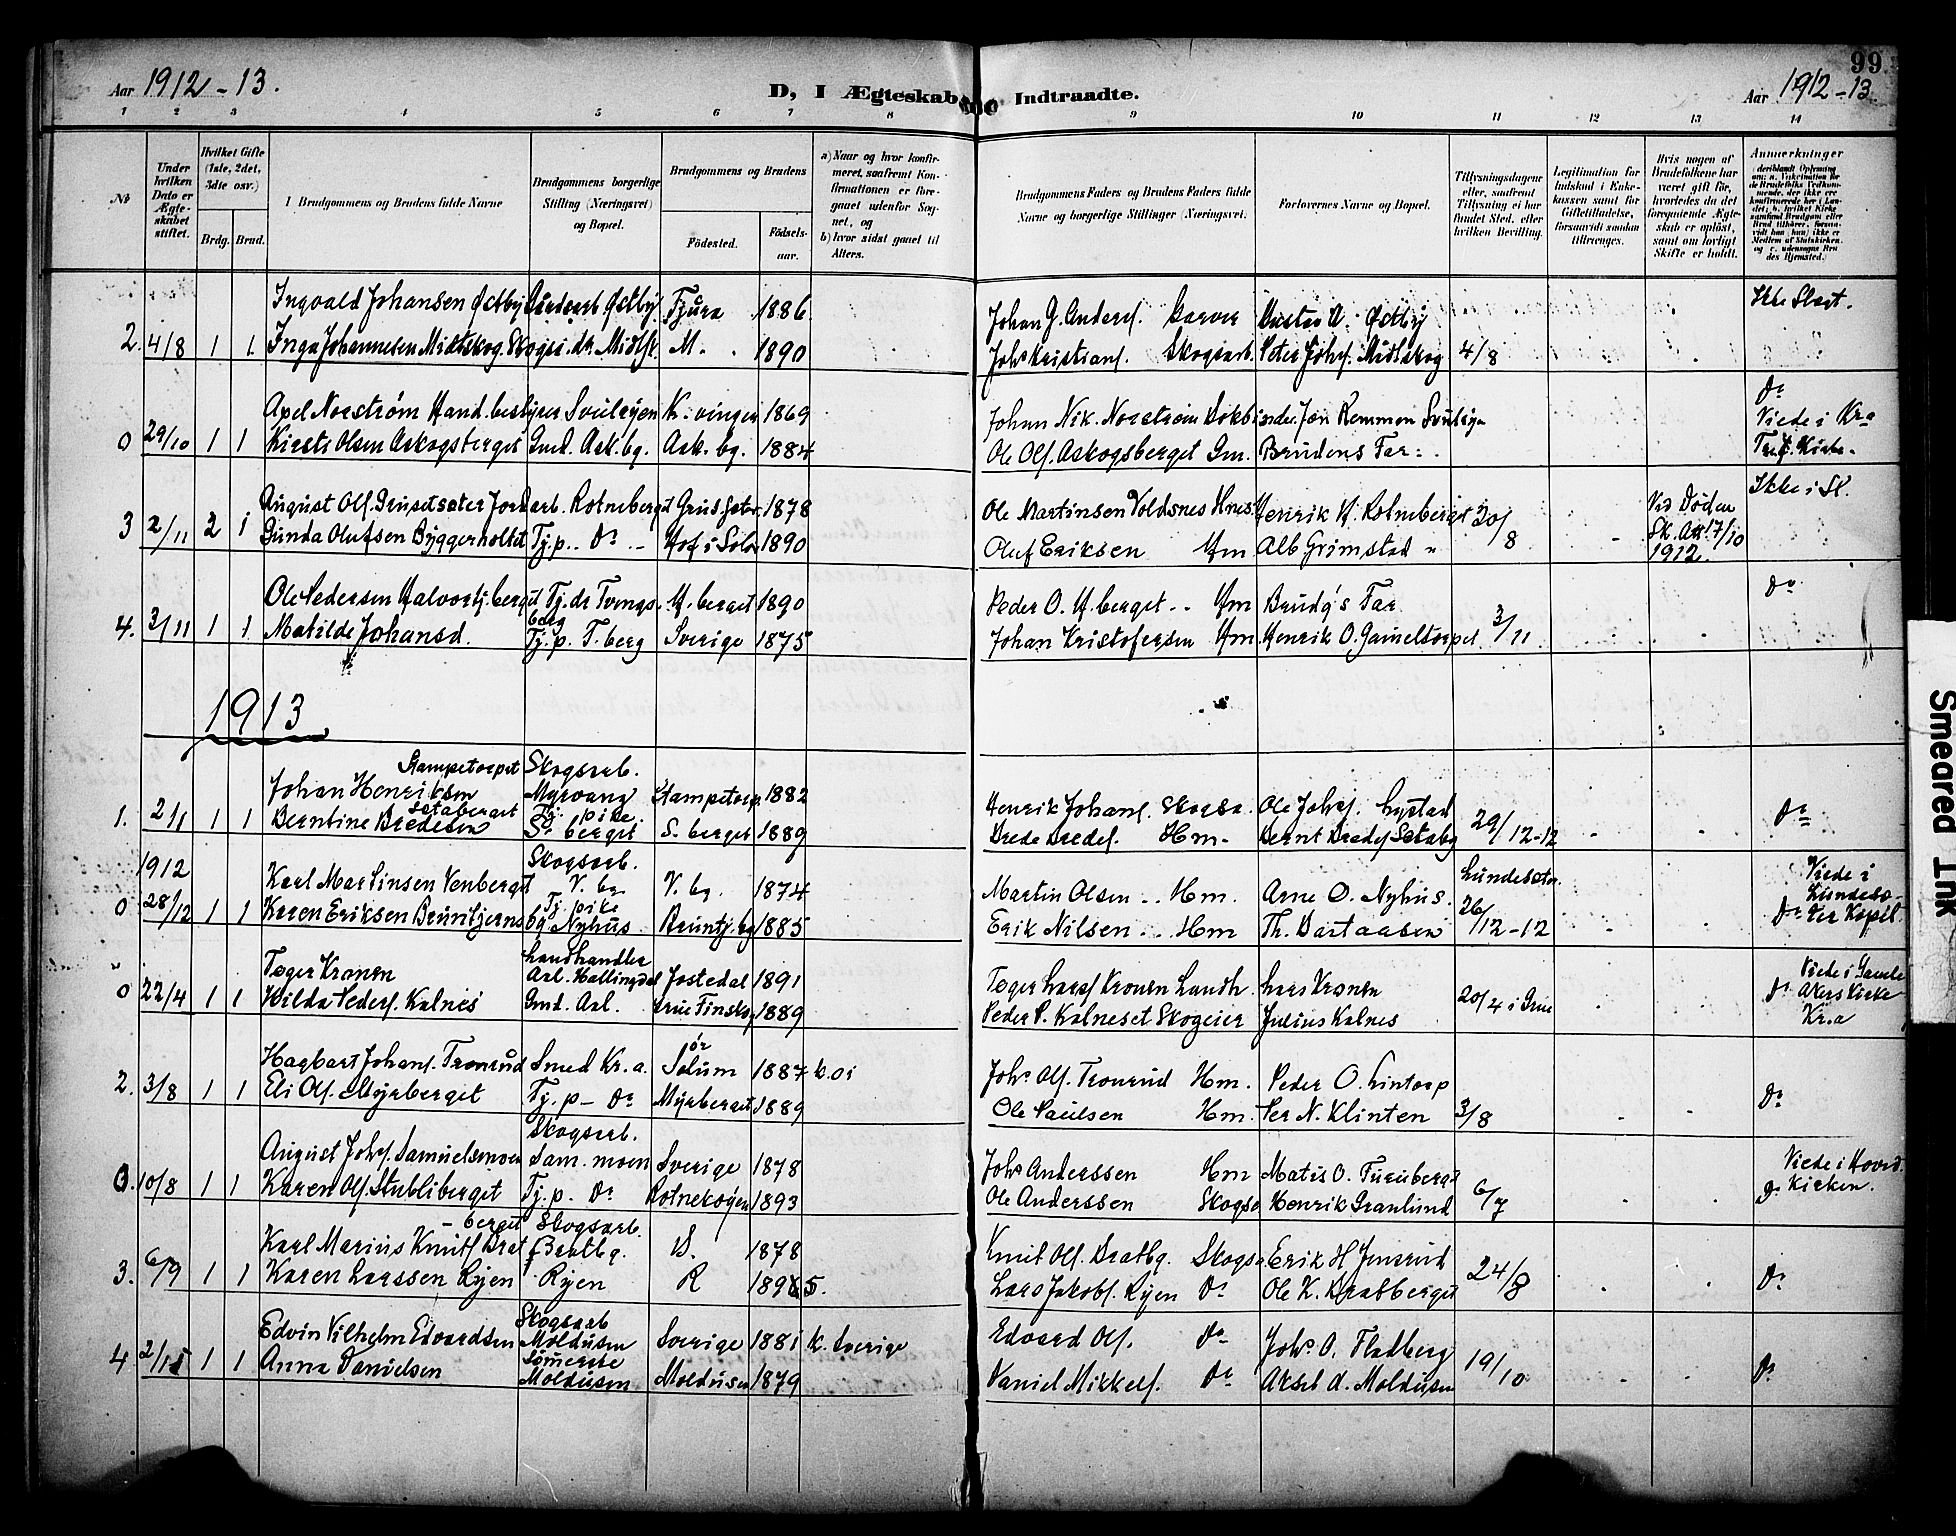 Aar 1912-13.
D, I Ægteskab
Indtraadte.
Aar 1912-13.
99
1 2 3 4 5 6 7 8 9 10 11 12 13 14
No
Under hvilken Dato er Ægteskabet stiftet.
Hvilket Gifte (1ste, 2det, 3die osv.)
Brdg. Brud.
Brudgommens og Brudens fulde Navne
Brudgommens borgerlige Stilling (Næringsvei) og Bopæl.
Brudgommens og Brudens
Fødested.
Fødselsaar.
a) Naar og hvor konfirmeret, saafremt Konfirmationen er foregaaet udenfor Sognet, og
b) hvor sidst gaaet til Alters.
Brudgommens Faders og Brudens Faders fulde Navne og borgerlige Stillinger (Næringsvei.
Forlovernes Navne og Bopæl.
Tillysningsdagene eller, saafremt Tillysning ei har fundet Sted, efter hvilken Bevilling.
Legitimation for Indskud i Enkekassen samt for Giftetilladelse, forsaavidt saadan tiltrænges.
Hvis nogen af Brudefolkene har været gift før, hvorledes da det foregaaende Ægteskab er opløst, samt om lovligt Skifte er holdt.
Anmærkninger
Ingvald Johansen Østby Østby Tjura 1886 Johan G. Anders. Garver Gustav A. Østby Ikke Slægt.
2. 4/8 1 1. Inga Johannesen Midtskog M. 1890 Johs Kristians. Skogsarb. Peter Johs. Midtskog 4/8
Axel Norström Hand.bestyrer Svulryen K.vinger 1869 Johan Nik. Norström Jon Remmen Do
0 29/10 1 1 Kirsti Olsen Askogsberget Gmd. Ask.bg. Ask.bg. 1884 Ole Ols. Askogsberget Gm. Brudens Far. Viede i Kra Tref. Kirke.
August Ols. Grusetsæter Jordarb. Rotneberget Grus.sæter 1878 Ole Martinsen Voldsnes Henrik H. Rotneberget Ved Døden Ikke i Sl.
3 2/11 2 1 Gunda Olufsen Byggerholtet Tj.p. Do Hof i Solør 1890 Oluf Eriksen Hm Alb Grimstad 30/8 Sk. Att. 17/10 1912.
Ole Pedersen Halvortj.berget Tj.dr Tvengsberg H.berget 1890 Peder O. H.berget Hm Brudg's Far Do
4. 3/11 1 1 Matilde Johansd. Tj.p. T.berg Sverige 1875 Johan Kristofersen Hm. Henrik O. Gameltorpet 3/11.
1913
Stampetorpet Skogsarb.
Johan Henriksen Myrvang Stampetorp. 1882 Henrik Johans. Skogsa. Ole Johs. Lystad
Sætaberget Tj.pike
1. 2/1 1 1 Berntine Bredesen S.berget S.berget 1889 Brede Bredes. Hm. Bernt Bredes. Sætabg 29/12-12 Do
1912 Skogsarb. Lundesæter.
Karl Martinsen Venberget V.bg V.bg. 1874 Martin Olsen Hm. Arne O. Nyhus. 26/12-12 Viede i Lundesæter Kapel.
0 28/12 1 1 Karen Eriksen Bruntjernsbg Tj.pike Nyhus Bruntj.bg 1885 Erik Nilsen Hm Th. Bartaasen Do
Landhandler
Tøger Kronen Aal. Hallingdal Jostedal 1891 Tøger Larss. Kronen Landh. Lars Kronen Viede i Gamle Akers Kirke Kr.a
0 22/4 1 1 Hilda Peders. Kalnes Gmd. Aal. Grue Finskog 1889 Peder P. Kalneset Skogeier Julius Kalnes 20/4 i Grue Do
Hagbart Johans. Tronrud Smed Kr.a. Solum ør 1887 k. oi Johs Ols. Tronrud Hm. Peder O. Lintorp
2. 3/8 1 1 Eli Ols. Myrberget Tj.p. Do Myrberget 1889 Ole Paulsen Hm. Per N. Klinten 3/8 Do
Skogsarb.
August Johs. Samuelsmoen Sam.moen Sverige 1878 Johs Anderssen Hm Matis O. Furuberget Viede i Hoved. Kirken.
0. 10/8 1 1 Karen Ols. Stubliberget Tj.p. Do Rotnekogen 1893 Ole Anderssen Skogsa Henrik Granlund 6/7 Do
berget Skogsarb.
Karl Marius Knuts. Brat Bratbg. B. 1878 Knut Ols. Bratbg. Skogsa. Erik H. Jensrud
3. 6/9 1 1 Karen Larssen Ryen Ryen R 1895. Lars Jakobs. Ryen Do Ole K. Bratberget 24/8 Do
Skogsarb
Edvin Vilhelm Edvardsen Moldusen Sverige 1881 k. Sverige Edvard Ols. Do Johs. O. Fladberg
4 2/11 1 1 Anna Danielsen Moldusen Moldusen 1879 Daniel Mikkels. Do Aksel d. Moldusen 19/10 Do
Smeared Ink